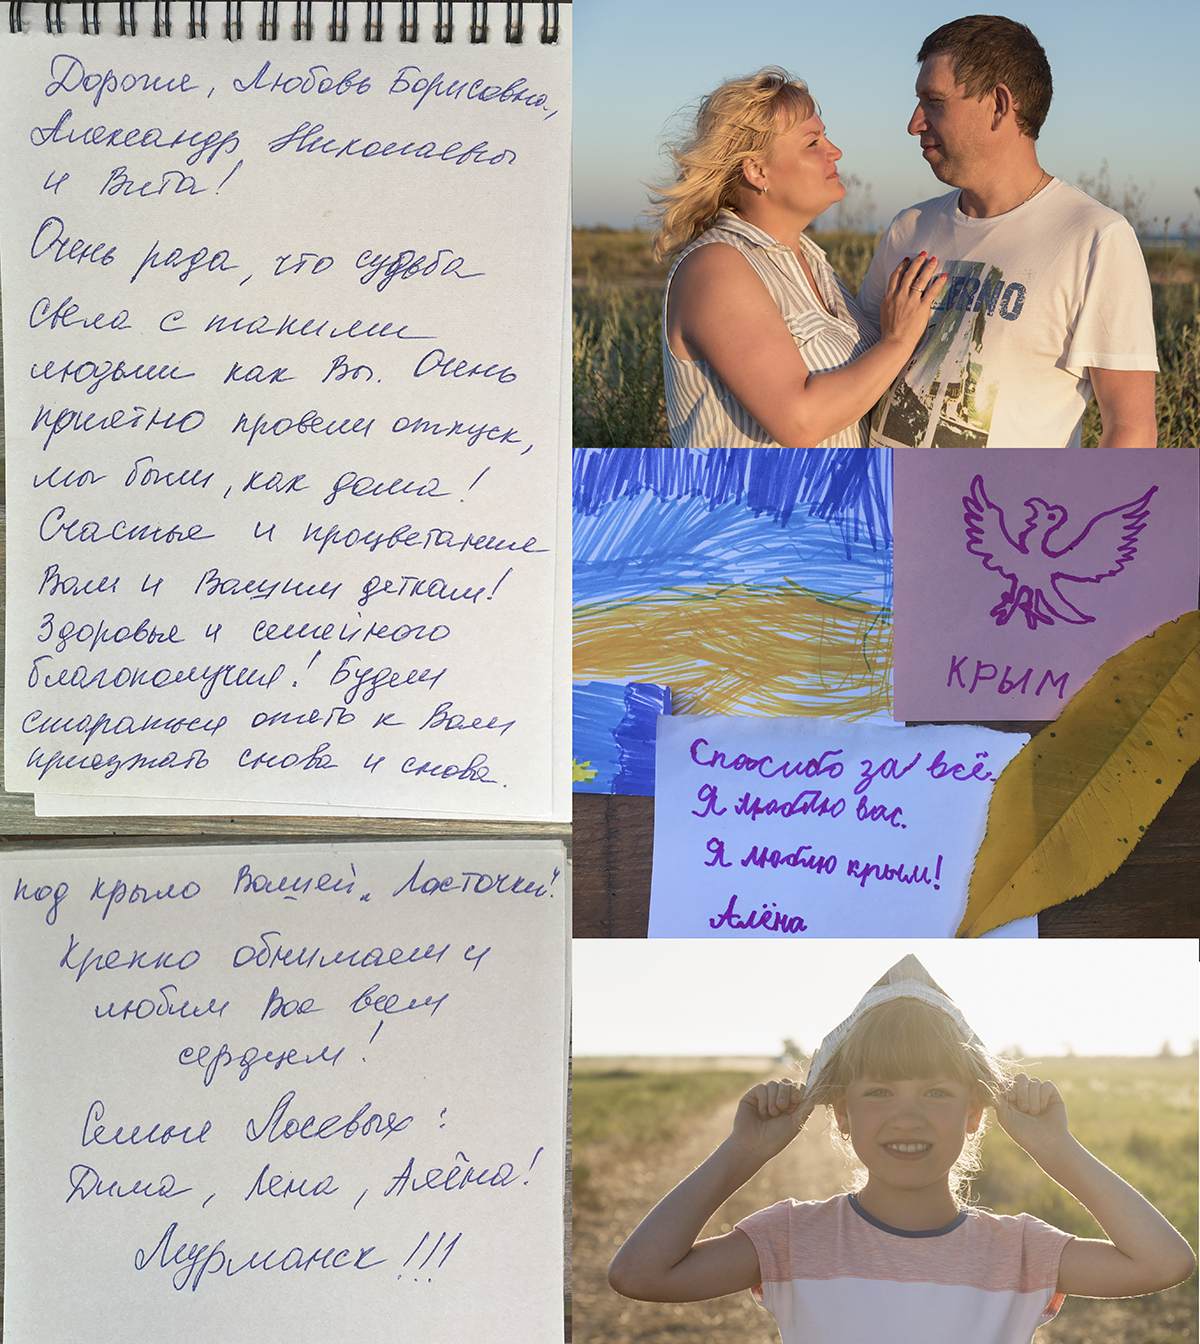 Дорогие, Любовь Борисовна,
Александр Николаевич
и Вита!
Очень рада, что судьба
свела с такими
людьми как Вы. Очень
приятно провели отпуск,
мы были, как дома!
Счастье и процветание
Вам и Вашим деткам!
Здоровья и семейного
благополучия! Будем
стараться опять к Вам
приезжать снова и снова
под крыло Вашей „Ласточки"!
Крепко обнимаем и
любим Вас всем
сердцем!
Семья Лосевых:
Дима, Лена, Алёна!
Мурманск!!!
КРЫМ
Спасибо за всё.
Я люблю вас.
Я люблю крым!
Алёна